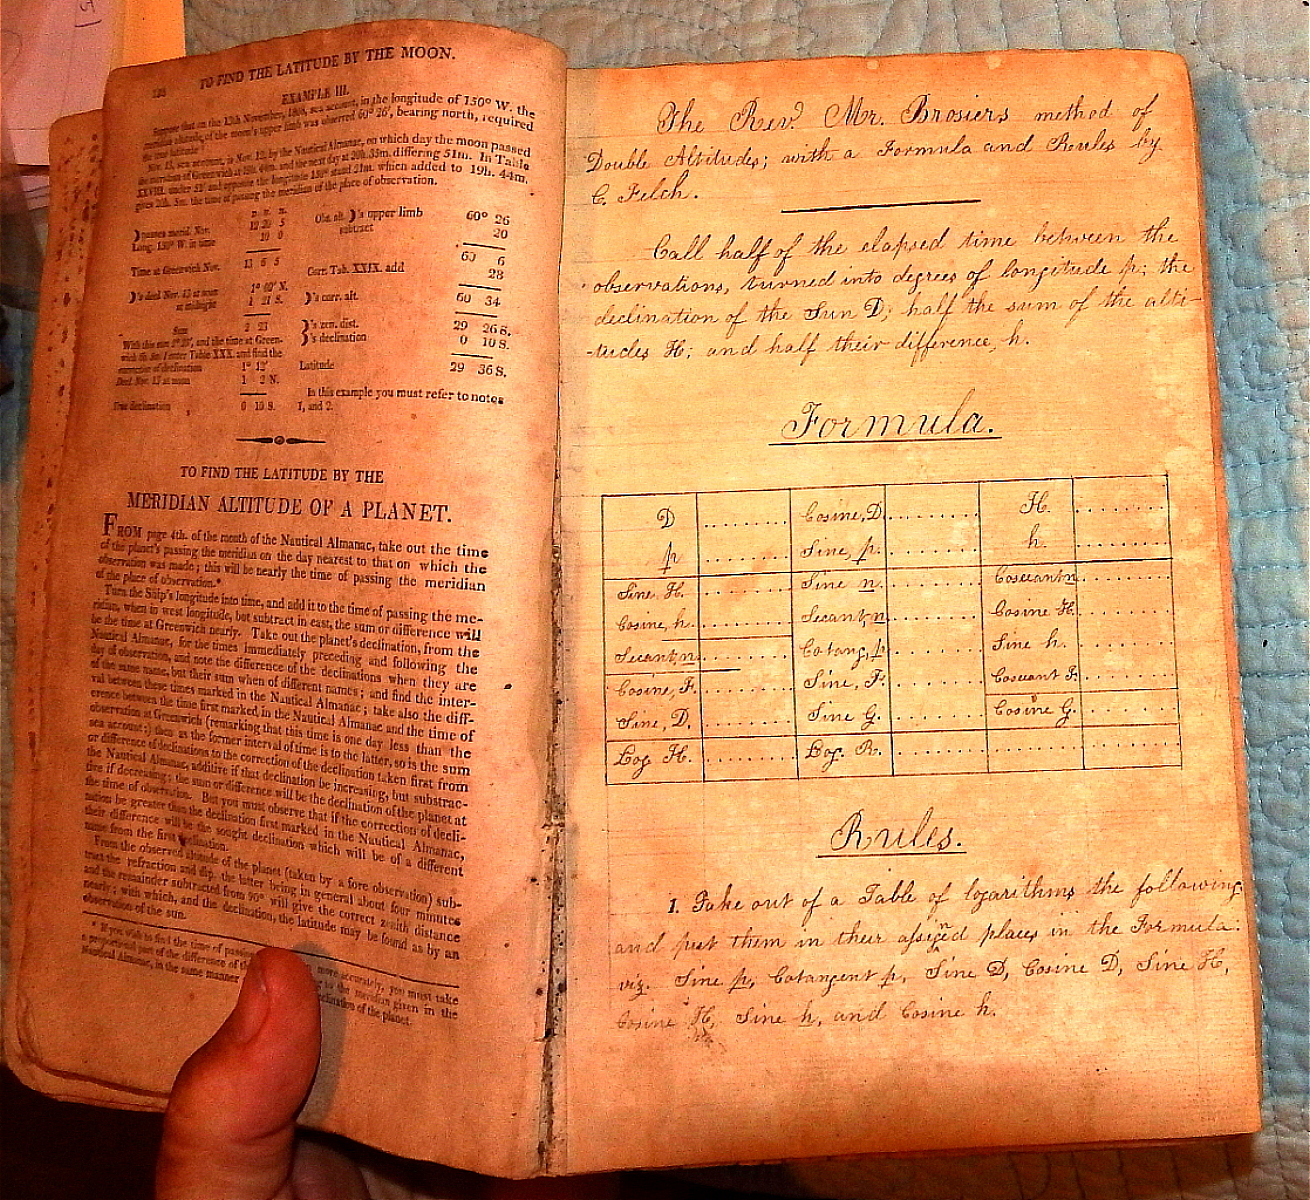 TO FIND THE LATITUDE BY THE MOON.
EXAMPLE III.
Suppose that on the 13th November, sea account, in the longitude of 150° W. the
meridian altitude of the moon's upper limb was observed 60° 26', bearing north, required
the true latitude
Nov. 13, sea account, is Nov. 12, by the Nautical Almanac, on which day the moon passed
the meridian of Greenwich at 19h. 44m. and the next day at 20h. 35m. differing 51m. In Table
XXVIII. under 51' and opposite the longitude 150° stand 21m. which added to 19h. 44m.
gives 20h. 5m. the time of passing the meridian of the place of observation.
)passes merid. Nov. 12 20 5
Long. 150° W. in time 10 0
Time at Greenwich Nov. 13 6 5
)'s decl. Nov. 13 at noon 1° 02' N.
at midnight 1 21 S.
Sum 2 23
With this sum 2° 23', and the time at Green-
wich 6h. 5m. enter Table XXX. and find the
correction of declination 1° 12'
Decl. Nov. 13 at noon 1 2 N.
True declination 0 10 S.
Obs. alt. )'s upper limb 60° 26
subtract 20
60 6
Corr. Tab. XXIX. add 28
)'s corr. alt. 60 34
)'s zen. dist. 29 26 S.
)'s declination 0 10 S.
Latitude 29 36 S.
In this example you must refer to notes
1, and 2.
TO FIND THE LATITUDE BY THE
MERIDIAN ALTITUDE OF A PLANET.
FROM page 4th. of the month of the Nautical Almanac, take out the time
of the planet's passing the meridian on the day nearest to that on which the
observation was made; this will be nearly the time of passing the meridian
of the place of observation.*
Turn the Ship's longitude into time, and add it to the time of passing the me-
ridian, when in west longitude, but subtract in east, the sum or difference will
be the time at Greenwich nearly. Take out the planet's declination, from the
Nautical Almanac, for the times immediately preceding and following the
day of observation, and note the difference of the declinations when they are
of the same name, but their sum when of different names; and find the inter-
val between these times marked in the Nautical Almanac; take also the diff-
erence between the time first marked, in the Nautical Almanac and the time of
observation at Greenwich (remarking that this time is one day less than the
sea account:) then as the former interval of time is to the latter, so is the sum
or difference of declinations to the correction of the declination taken first from
the Nautical Almanac, additive if that declination be increasing, but substrac-
tive if decreasing; the sum or difference will be the declination of the planet at
the time of observation. But you must observe that if the correction of decli-
nation be greater than the declination first marked in the Nautical Almanac,
their difference will be the sought declination which will be of a different
name from the first declination.
From the observed altitude of the planet (taken by a fore observation) sub-
tract the refraction and dip, the latter being in general about four minutes
and the remainder subtracted from 90° will give the correct zenith distance
nearly; with which, and the declination, the latitude may be found as by an
observation of the sun.
* If you wish to find the time of passing more accurately, you must take
a proportional part of the difference of the to the meridian given in the
Nautical Almanac, in the same manner declination of the planet.
The Rev.d Mr. Brosiers method of
Double Altitudes; with a Formula and Rules by
C. Felch.
Call half of the elapsed time between the
observations, turned into degrees of longitude p; the
declination of the Sun D; half the sum of the alti-
-tudes H; and half their difference, h.
Formula.
D ......... Cosine, D ......... H. .........
p ......... Sine, p. ......... h. .........
Sine H. ......... Sine n. ......... Cosecant n .........
Cosine, h. ......... Secant, n ......... Cosine H. .........
Secant, n. ......... Cotang, p ......... Sine h. .........
Cosine, F. ......... Sine, F. ......... Cosecant F. .........
Sine, D. ......... Sine G. ......... Cosine G. .........
Log. H. ......... Log. R. ......... ......... .........
Rules.
1. Take out of a Table of logarithms the following
and put them in their assigned places in the Formula:
viz. Sine p, Cotangent p, Sine D, Cosine D, Sine H,
Cosine H, Sine h, and Cosine h.